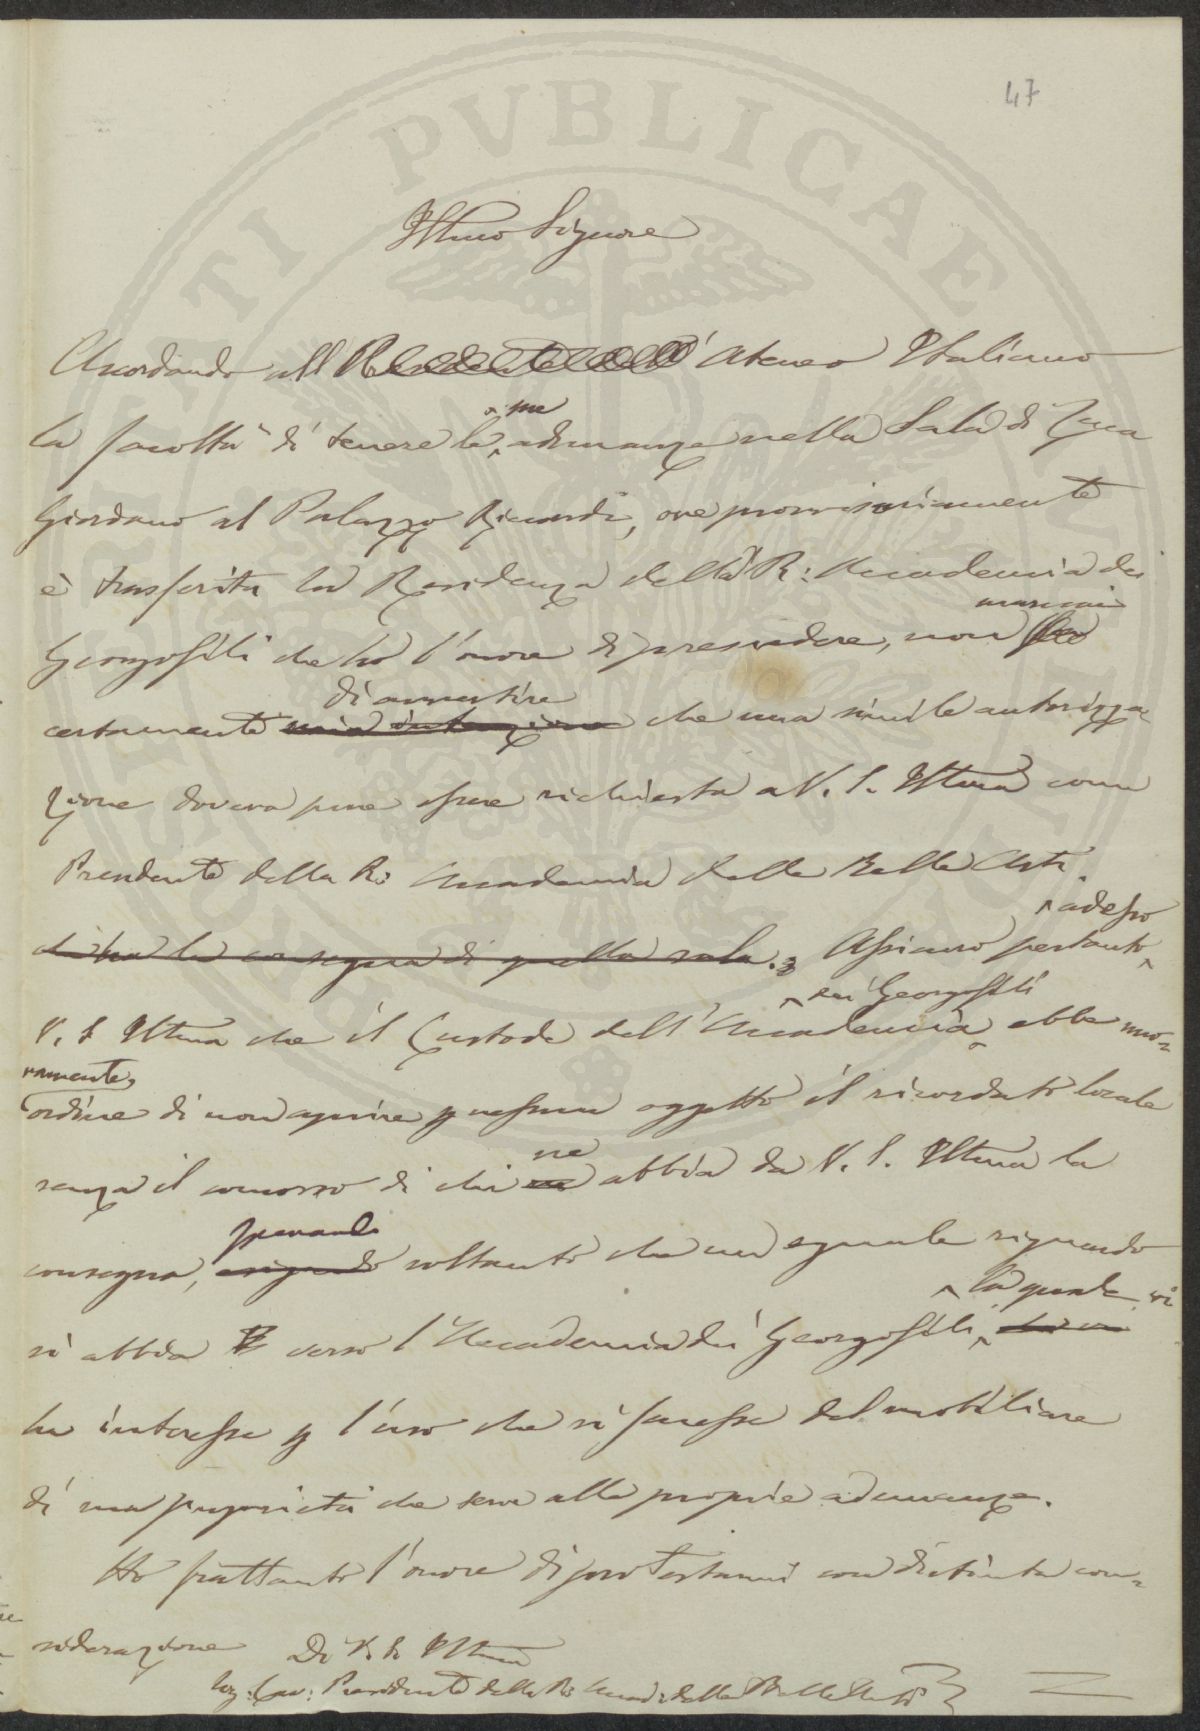 47
Illmo Signore
Accordando all' Presidente dell' Ateneo Italiano
la facoltà di tenere le ^sue adunanze nella Sala di Luca
Giordano al Palazzo Riccardi, ove provvisoriamente
è trasferita la Residenza della R: Accademia dei
Georgofili che ho l'onore di presiedere, non mancai
certamente mia intenzione di avvertire che una simile autorizza
zione doveva pure essere richiesta a V. S. Illma come
Presidente della R: Accademia delle Belle Arti.
che ha la consegna di quella sala. Assicuro pertanto ^adesso
V. S. Illma che il Custode dell' Accademia ^dei Georgofili ebbe nuo-
vamente, ordine di non aprire p nessun oggetto il ricordato locale
senza il concorso di chi ne abbia da V. S. Illma la
consegna, sperando soltanto che un eguale riguardo
si abbia verso l'Accademia dei Georgofili, ^la quale vi
ha interesse p l'uso che si facesse del mobiliare
di sua proprietà che serve alle proprie adunanze.
Ho frattanto l'onore di protestarmi con distinta con-
siderazione Di V. S. Illma
Sig: Cav: Presidente della R: Accad: delle Belle Arti
PVBLICAE